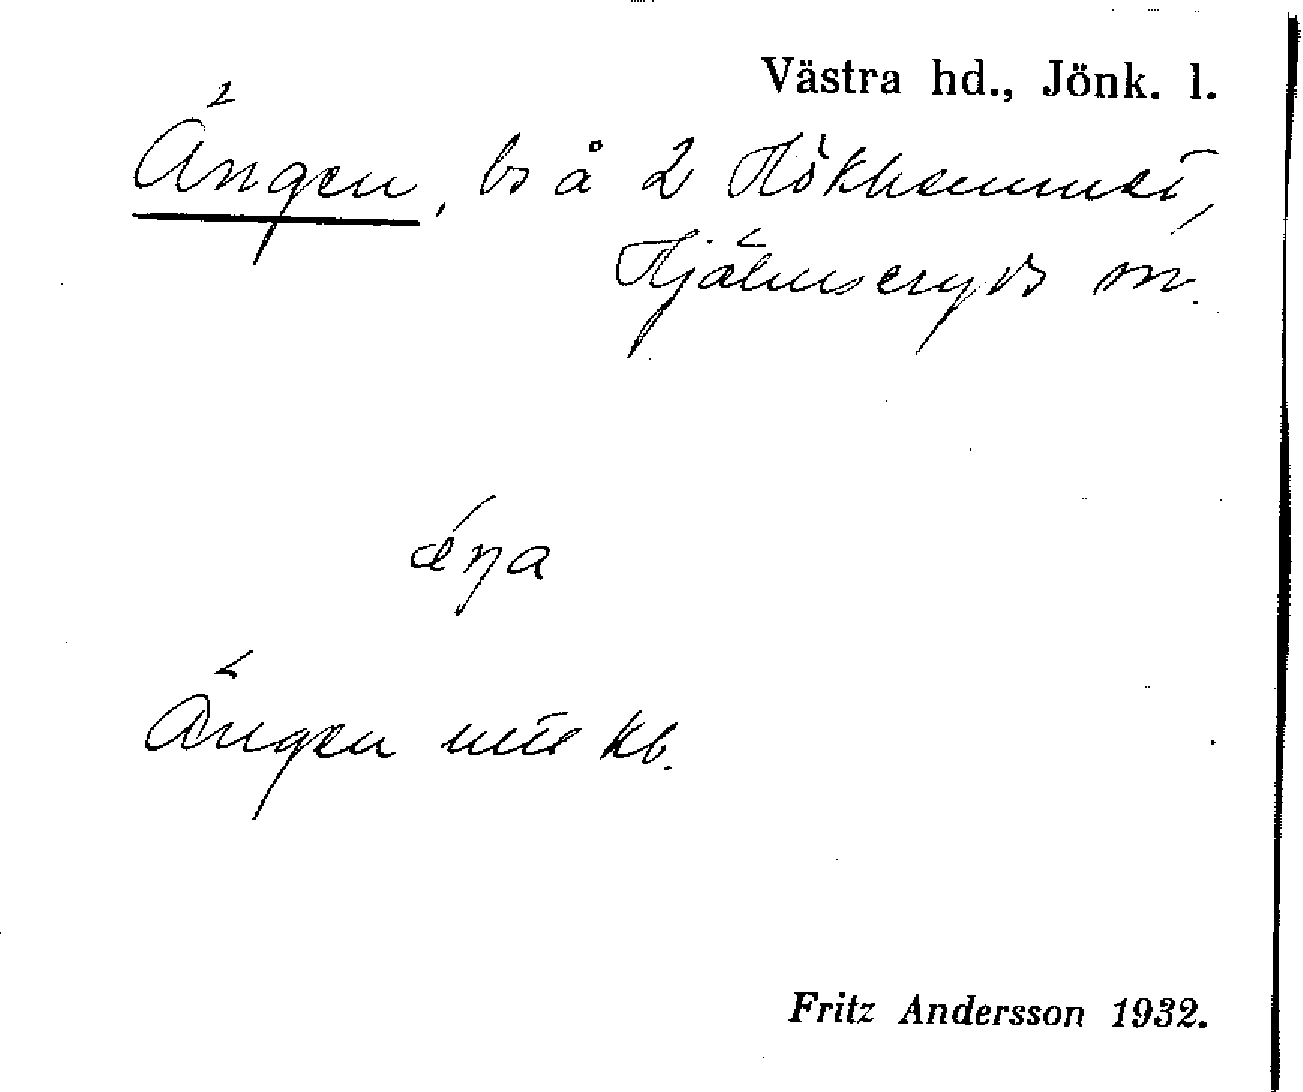 Västra hd., Jönk. l.
Ängen, bs å 2 Hökhemmet,
Hjälmseryds sn.
ǽŋa
Ängen mtl kb.
Fritz Andersson 1932.